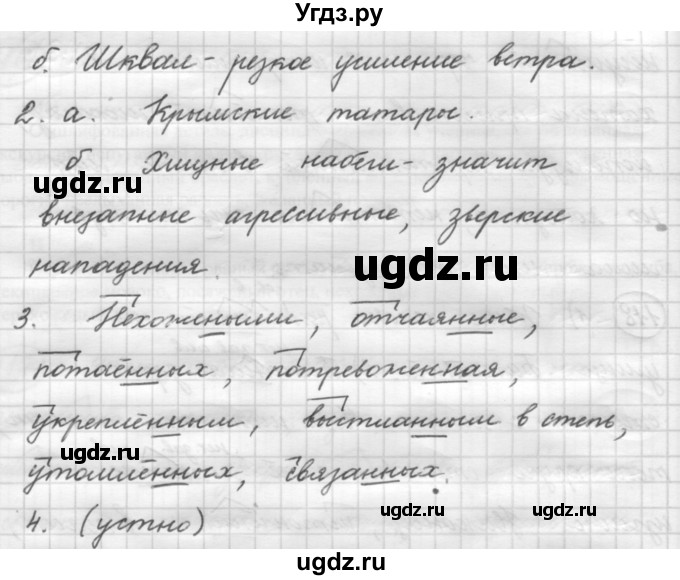 Угдз.ру
б. Шквал - резкое усиление ветра.
2. а. Крымские татары.
б Хищные набеги - значит
ugdz.ru
внезапные агрессивные, зверские
ugdz.ru
нападения.
3. Нехожеными, отчаянные,
потаённых, потревоженная,
укреплённым, выстланным в степь,
ugdz.ru
утомлённых, связанных.
ugdz.ru ugdz.ru
4. (устно)
ugdz.ru
Угдз.ру